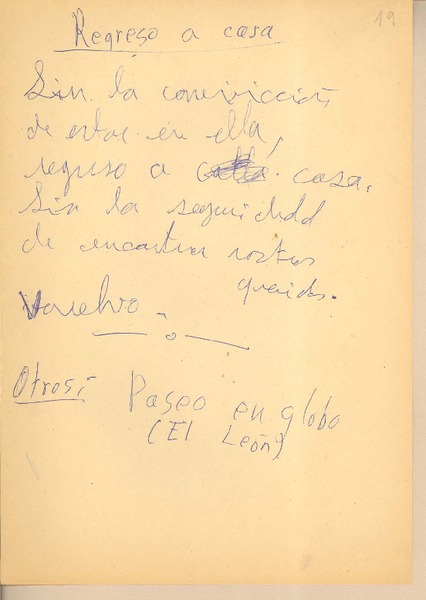 19
Regreso a casa
Sin la convicción,
de estar en ella,
regreso a casa.
Sin la seguridad
de encontrar rostros
queridos.
Vuelvo
Otrosí Paseo en globo
(El León)